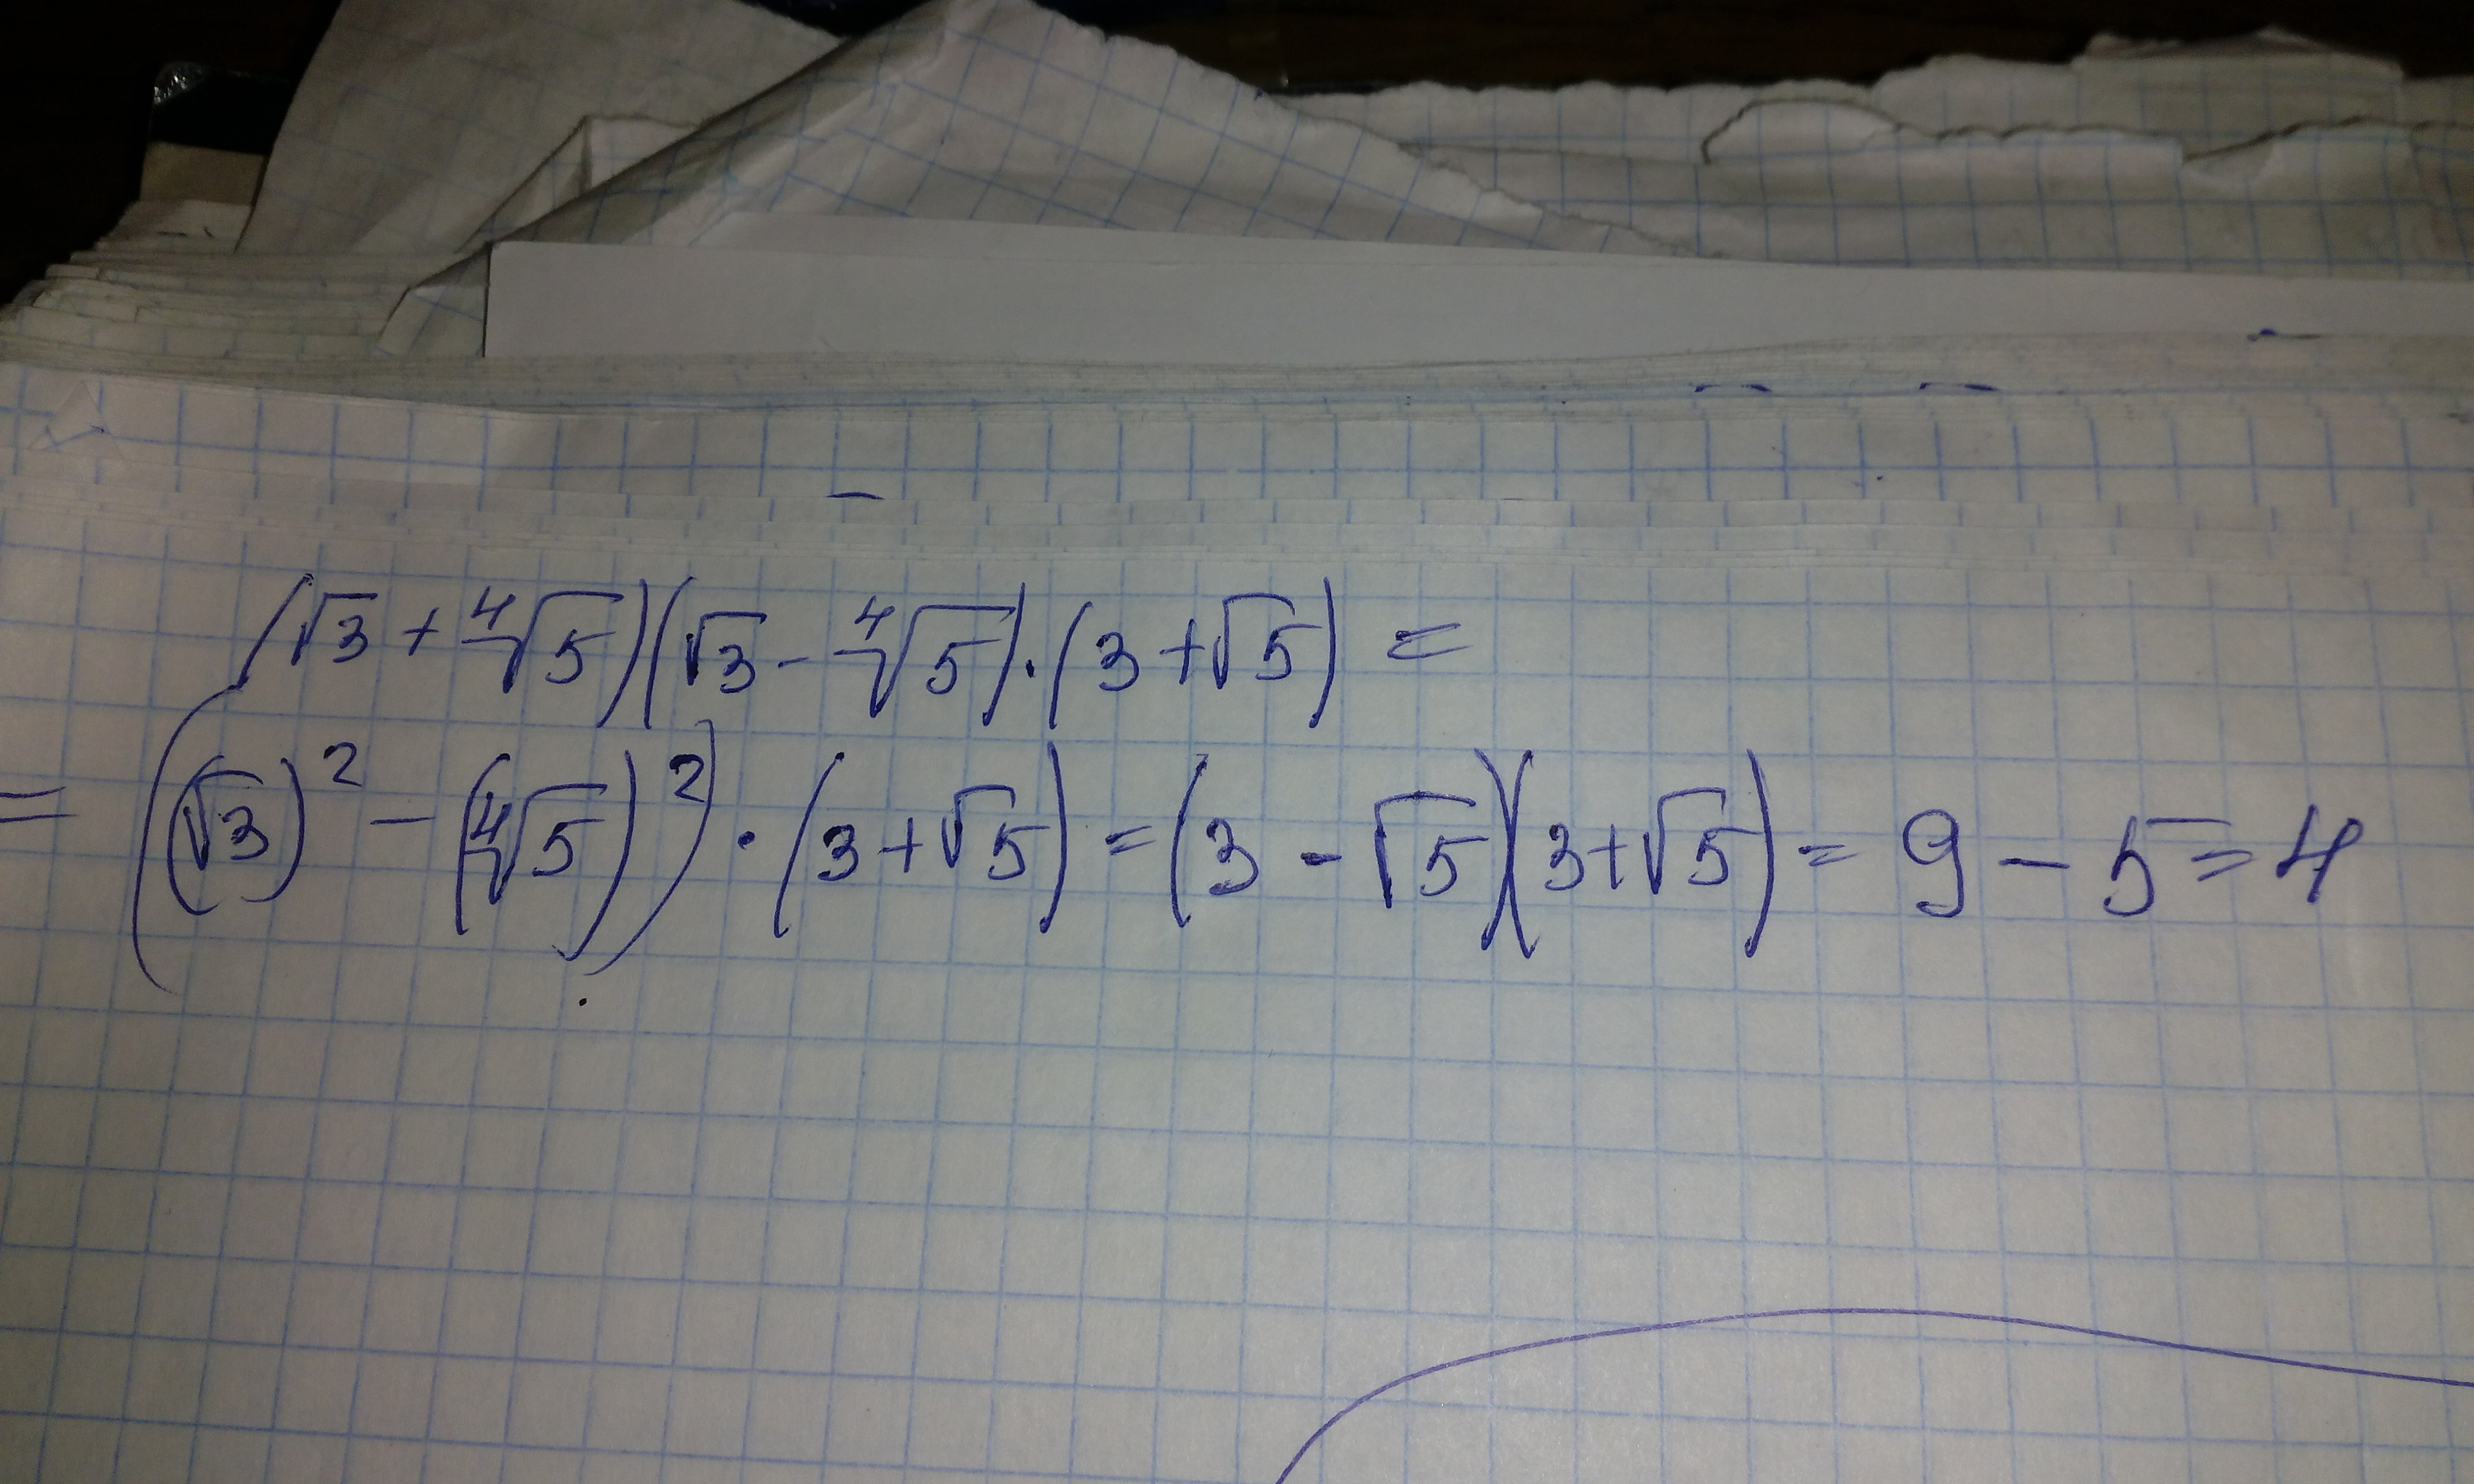 (√3 + ⁴√5)(√3 - ⁴√5)·(3 + √5) =
= ((√3)² - (⁴√5)²)·(3 + √5) = (3 - √5)(3 + √5) = 9 - 5 = 4